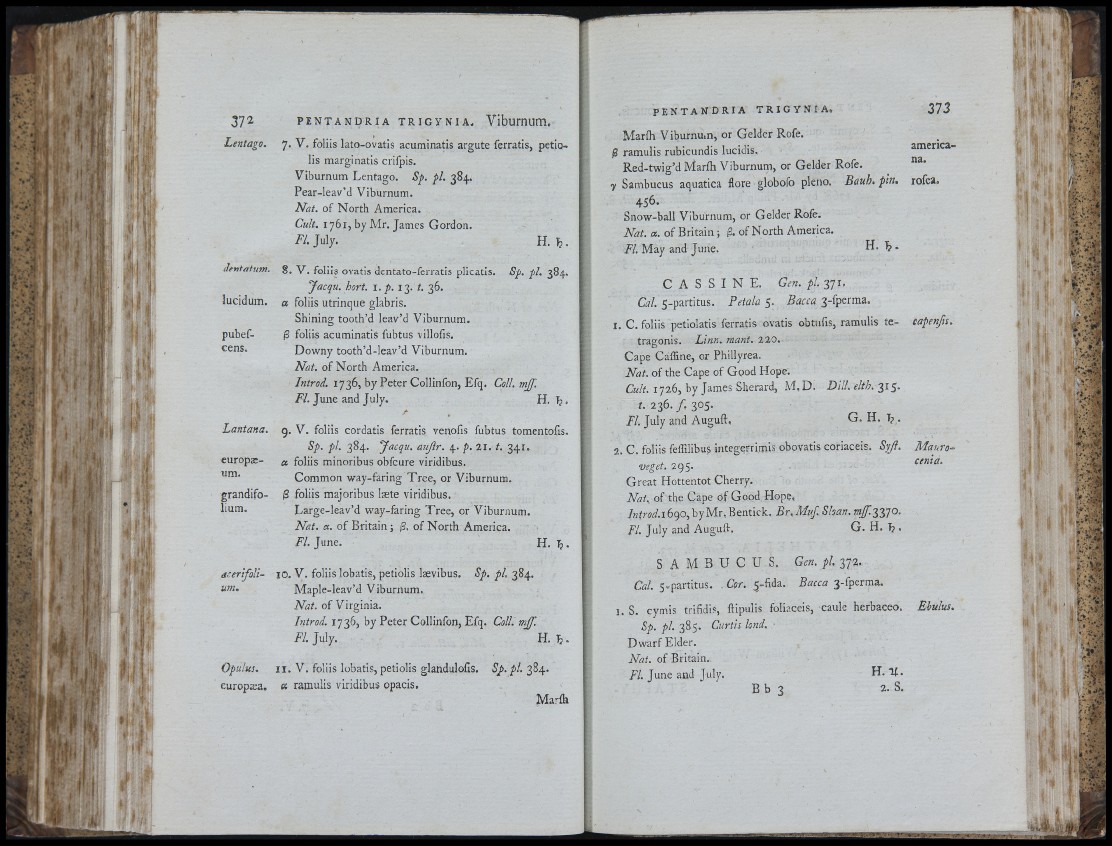 372 PENTANDRIA TRIGYNIA. Viburnum.
Lentago. 7. V. foliis lato-ovatis acuminatis argute ſerratis, petio-
lis marginatis criſpis.
Viburnum Lentago. Sp. pl. 384.
Pear-leav'd Viburnum.
Nat. of North America.
Cult. 1761, by Mr. James Gordon.
Fl. July. H. ♄.
dentatum. 8. V. foliis ovatis dentato-ſerratis plicatis. Sp. pl. 384.
Jacqu. hort. 1. p. 13. t. 36.
lucidum. α foliis utrinque glabris.
Shining tooth'd leav'd Viburnum.
pubeſ- β foliis acuminatis ſubtus villoſis.
cens. Downy tooth'd-leav'd Viburnum.
Nat. of North America.
Introd. 1736, by Peter Collinſon, Eſq. Coll. mſſ.
Fl. June and July. H. ♄.
Lantana. 9. V. foliis cordatis ſerratis venoſis ſubtus tomentoſis.
Sp. pl. 384. Jacqu. auſtr. 4. p. 21. t. 341.
europæ- α foliis minoribus obſcure viridibus.
um. Common way-faring Tree, or Viburnum.
grandifo- β foliis majoribus læte viridibus.
lium. Large-leav'd way-faring Tree, or Viburnum.
Nat. α. of Britain; β. of North America.
Fl. June. H. ♄.
acerifoli- 10. V. foliis lobatis, petiolis lævibus. Sp. pl. 384.
um. Maple-leav'd Viburnum.
Nat. of Virginia.
Introd. 1736, by Peter Collinſon, Eſq. Coll. mſſ.
Fl. July. H. ♄.
Opulus. 11. V. foliis lobatis, petiolis glanduloſis. Sp. pl. 384.
europæa. α ramulis viridibus opacis.
Marſh
PENTANDRIA TRIGYNIA. 373
Marſh Viburnum, or Gelder Roſe.
β ramulis rubicundis lucidis. america-
Red-twig'd Marſh Viburnum, or Gelder Roſe. na.
γ Sambucus aquatica flore globoſo pleno. Bauh. pin. roſea.
456.
Snow-ball Viburnum, or Gelder Roſe.
Nat. α. of Britain; β. of North America.
Fl. May and June. H. ♄.
CASSINE. Gen. pl. 371.
Cal. 5-partitus. Petala 5. Bacca 3-ſperma.
1. C. foliis petiolatis ſerratis ovatis obtuſis, ramulis te- capenſis.
tragonis. Linn. mant. 220.
Cape Caſſine, or Phillyrea.
Nat. of the Cape of Good Hope.
Cult. 1726, by James Sherard, M.D. Dill. elth. 315.
t. 236. f. 305.
Fl. July and Auguſt. G. H. ♄.
2. C. foliis ſeſſilibus integerrimis obovatis coriaceis. Syſt. Mauro-
veget. 295. cenia.
Great Hottentot Cherry.
Nat. of the Cape of Good Hope.
Introd. 1690, by Mr. Bentick. Br. Muſ. Sloan. mſſ. 3370.
Fl. July and Auguſt. G. H. ♄.
SAMBUCUS. Gen. pl. 372.
Cal. 5-partitus. Cor. 5-fida. Bacca 3-ſperma.
1. S. cymis trifidis, ſtipulis foliaceis, caule herbaceo. Ebulus.
Sp. pl. 385. Curtis lond.
Dwarf Elder.
Nat. of Britain.
Fl. June and July. H. ♃.
B b 3 2. S.